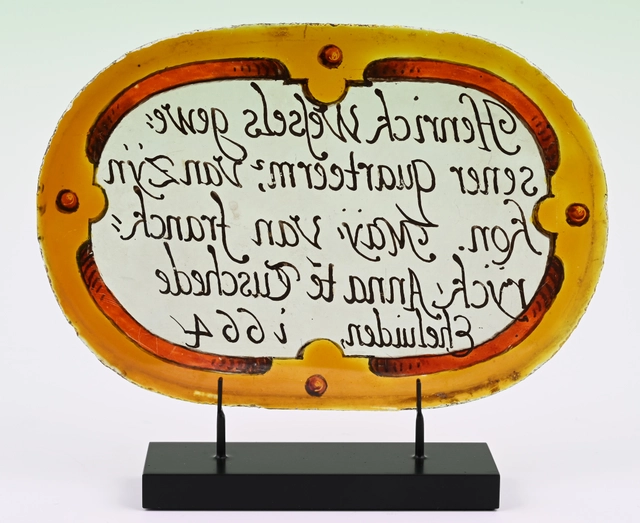 Henrick Wessels gewe:
sener quarteerm; Van zÿn
Kon. May. Van franck:
ryck; Anna té Cuschede
Eheluiden, i664